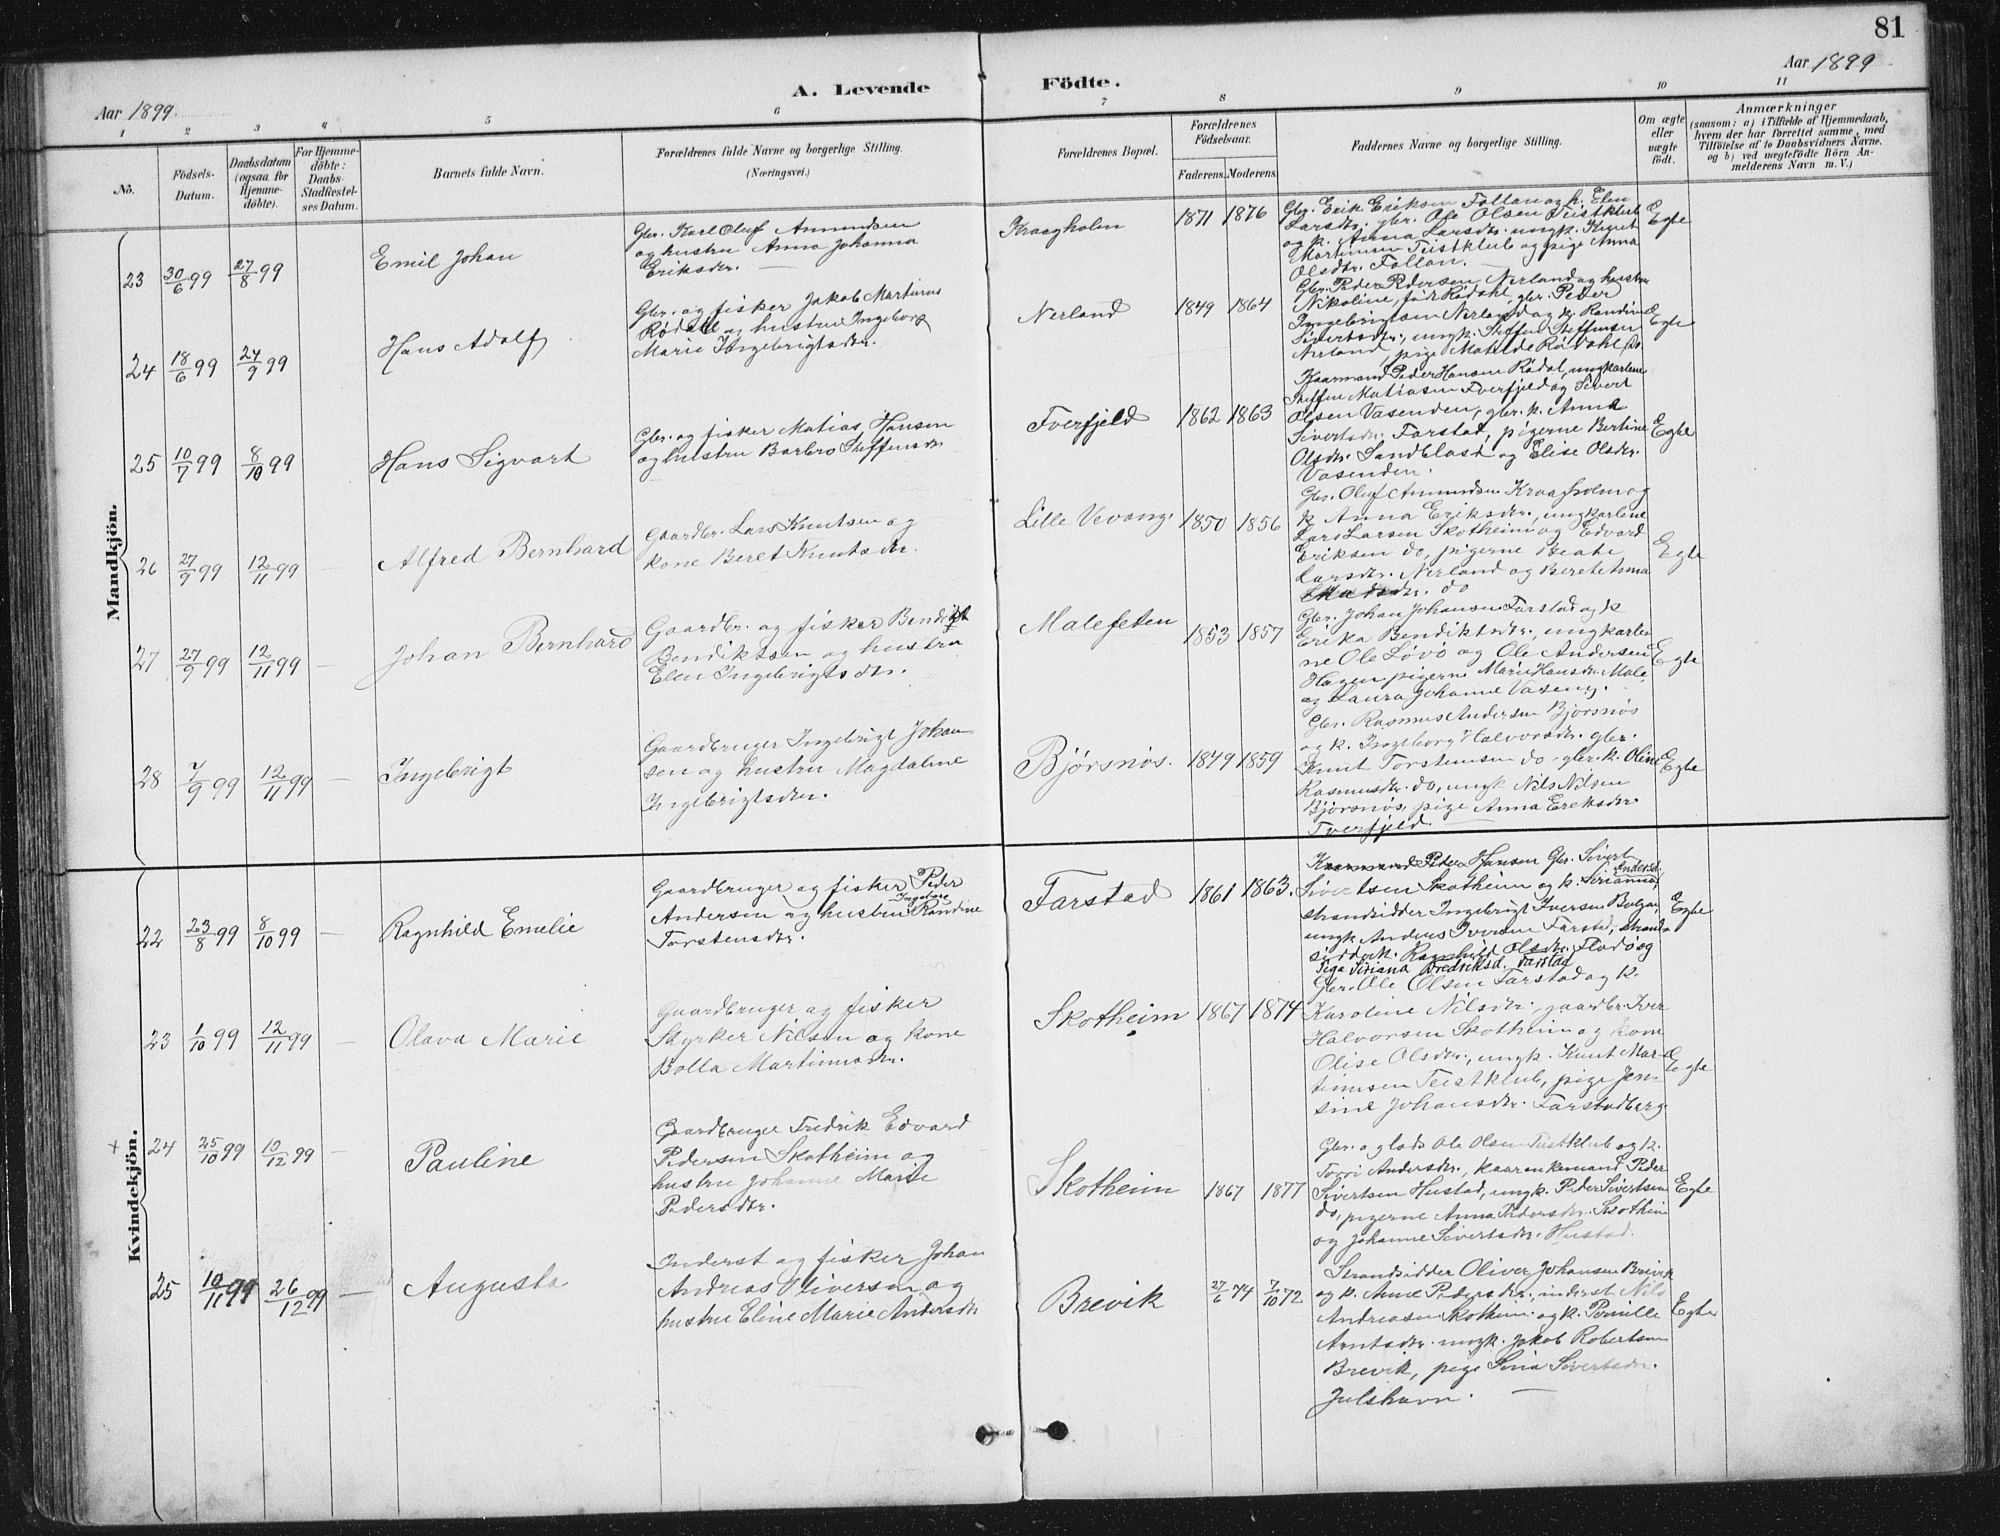 81
Aar 1899.
A. Levende
Födte.
Aar 1899
1 2 3 4 5 6 7 8 9 10 11
No.
Födsels-
Datum.
Daabsdatum
(ogsaa for
Hjemme-
döbte).
For Hjemme-
döbte:
Daabs-
Stadfæstel-
ses Datum.
Barnets fulde Navn.
Forældrenes fulde Navne og borgerlige Stilling.
(Næringsvei.)
Forældrenes Bopæl.
Forældrenes
Födselsaar.
Faderens. Moderens.
Faddernes Navne og borgerlige Stilling.
Om ægte
eller
uægte
födt.
Anmærkninger
(saasom: a) i Tilfælde af Hjemmedaab,
hvem der har forrettet samme, med
Tilföielse af to Daabsvidners Navne.
og b) ved uægtefödte Börn An-
melderens Navn m. V.)
Mandkjön.
23 30/6 99 27/8 99
Emil Johan
Gbr. Karl Oluf Amundsen
og hustru Anna Johanna
Eriksdtr. —
Kraagholm
1871 1876
Gbr. Erik Eriksen Follan og h. Elen
Larsdtr., gbr. Ole Olsen Teistklub
og k. Anna Larsdtr. ungk. Knut
Martinusen Teistklub og pige Anna
Olsdtr. Follan.
Egte
24 18/6 99 24/9 99
Hans Adolf
Gbr. og fisker Jakob Martinus
Rødahl og hustru Ingeborg
Marie Ingebrigtsdtr.
Nerland
1849 1864
Gbr. Peder Pedersen Nerland og hustru
Nikoline, født Rødahl, gbr. Peder
Ingebrigtsen Nerland og k. Randine
Sivertsdtr., ungk. Steffen Steffensen
Nerland, pige Matilde Rødahl, do.
Egte
25 10/7 99 8/10 99
Hans Sigvart
Gbr. og fisker Matias Hansen
og hustru Barbro Steffensdtr
Tverfjeld
1862 1863
Kaarmand Peder Hansen Rødal, ungkarlene
Steffen Matiasen Tverfjeld og Sivert
Olsen Vasenden, gbr. k. Anne
Sivertsdtr. Farstad, pigerne Bertine
Olsdtr. Sandblast og Elise Olsdtr.
Vasenden.
Egte
26 27/9 99 12/11 99 —
Alfred Bernhard
Gaardbr. Lars Knutsen og
kone Beret Knutsdtr.
Lille Vevang.
1850 1856
Gbr. Oluf Amundsen Kraagholm og
k Anna Eriksdtr., ungkarlene
Lars Larsen Skotheim og Edvard
Eriksen do, pigerne Beate
Larsdtr. Nerland og Berete Anna
do
Egte
27 27/9 99 12/11 99 —
Johan Bernhard
Gaardbr. og fisker Bendikt
Bendiktsen og hustru
Elen Ingebrigtsdtr.
Malefeten
1853 1857
Gbr. Johan Johansen Farstad og k
Erika Bendiktsdtr., ungkarle-
ne Ole Løvø og Ole Andersen
Hagen, pigerne Marie Hansdtr. Male
og Laura Johanne Vaseng.
Egte
28 7/9 99 12/11 99 —
Ingebrigt
Gaardbruger Ingebrigt Johan-
sen og hustru Magdaline
Ingebrigtsdtr.
Bjørsnøs.
1849 1859
Gbr. Rasmus Andersen Bjørsnøs
og k. Ingeborg Halvorsdtr. gbr.
Knut Torstensen do, gbr. k. Oline
Rasmusdtr. do, ungk Nils Nilsen
Bjørsnøs, pige Anna Eriksdtr.
Tverfjeld.
Egte
Kvindekjön.
22 23/8 99 8/10 99 —
Ragnhild Emelie
Gaardbruger og fisker Peder
Andersen og hustru Ingeborg Randine
Torstensdtr.
Farstad
1861 1863.
Kaarmand Peder Hansen Gbr. Sivert
Sivertsen Skotheim og k. Serianna Andersd.
strandsidder Ingebrigt Iversen Bolgan,
ungk Anders Iversen Farstad, strand-
sidderk. Ragnhild Olsdtr. Flodø og
Pige Siriana Fredriksd. Farstad
Egte
23 1/10 99 12/11 99 —
Olava Marie
Gaardbruger og fisker
Styrker Nilsen og kone
Bolla Martinusdtr.
Skotheim
1867 1874
Gbr. Ole Olsen Farstad og k.
Karoline Nilsdtr., gaardbr. Iver
Halvorsen Skotheim og kone
Olise Olsdtr., ungk. Knut Mar-
tinusen Teistklub, pige Jen-
sine Johansdtr. Farstadberg
Egte
+ 24 25/10 99 10/12 99 —
Pauline
Gaardbruger Fredrik Edvard
Pedersen Skotheim og
hustru Johanne Marie
Pedersdtr.
Skotheim
1867 1877
Gbr. og lods Ole Olsen Teistklub og k.
Torri Andersdtr., kaarenkemand Peder
Sivertsen Hustad, ungk. Peder Sivertsen
do, pigerne Anna Pedersdtr. Skotheim
og Johanne Sivertsdtr. Hustad.
Egte
25 10/11 99 26/12 99 —
Augusta
Inderst og fisker Johan
Andreas Oliversen og
hustru Eline Marie Andersdtr
Brevik
27/6 74 7/10 72
Strandsidder Oliver Johansen Brevik
og k. Anne Pedersdtr., inderst Nils
Andreasen Skotheim og k. Pernille
Arntsdtr. ungk. Jakob Robertsen
Brevik, pige Sina Sivertsdtr.
Julshavn. —
Egte